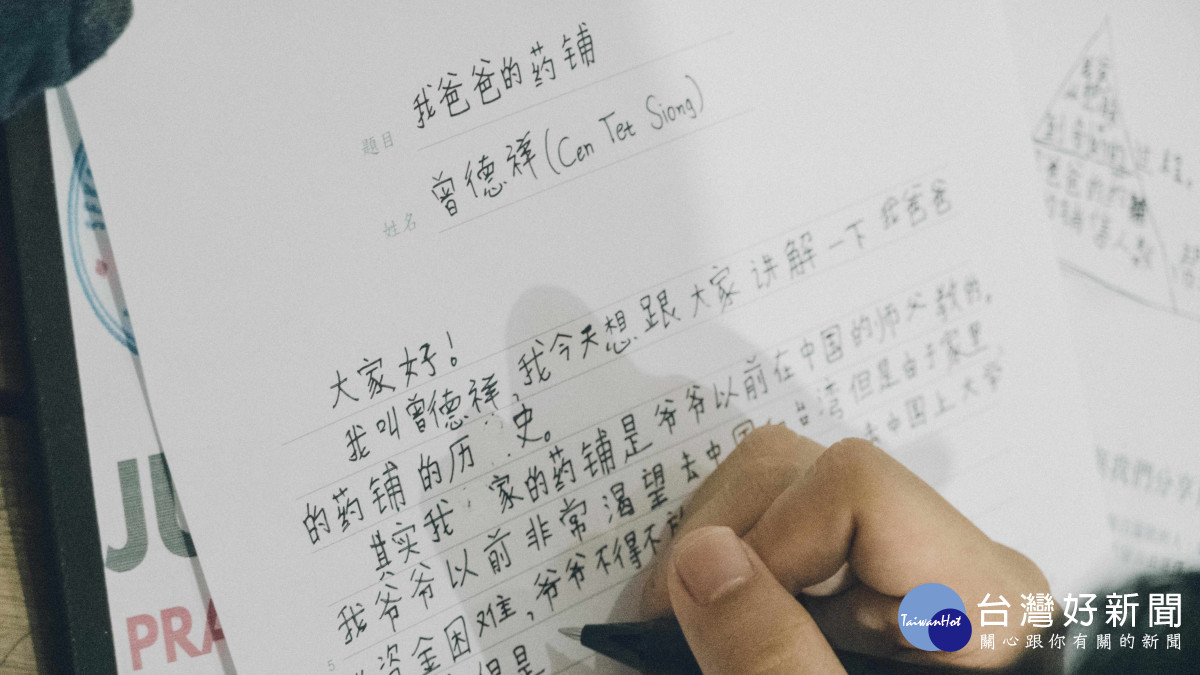 題目 我爸爸的药铺
姓名 曾德祥(Cen Tet Siong)
大家好!
我叫曾德祥,我今天想跟大家讲解一下我爸爸
的药铺的历史。
其实我家的药铺是爷爷以前在中国的师父教的,
我爷爷以前非常渴望去中国 台湾但是由于家里
资金困难,爷爷不得不 去中国上大学
但是
5
JU
PRA
过程,
人数
我們分享
TaiwanHot
台灣好新聞
關心跟你有關的新聞